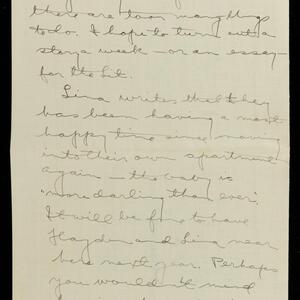 there are too many things
to do. I hope to turn out a
story a week - or an essay -
for the Lit.
Lina writes that they
has been having a most
happy time since moving
into their own apartment
again - the baby is
"more darling than ever".
It will be fine to have
Hayden and Lina near
here next year. Perhaps
you wouldn't mind